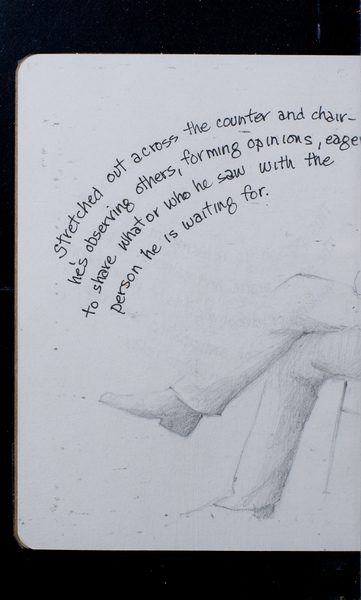 Stretched out across the counter and chair-
he's observing others, forming opinions, eage
to share what or who he saw with the
person he is waiting for.